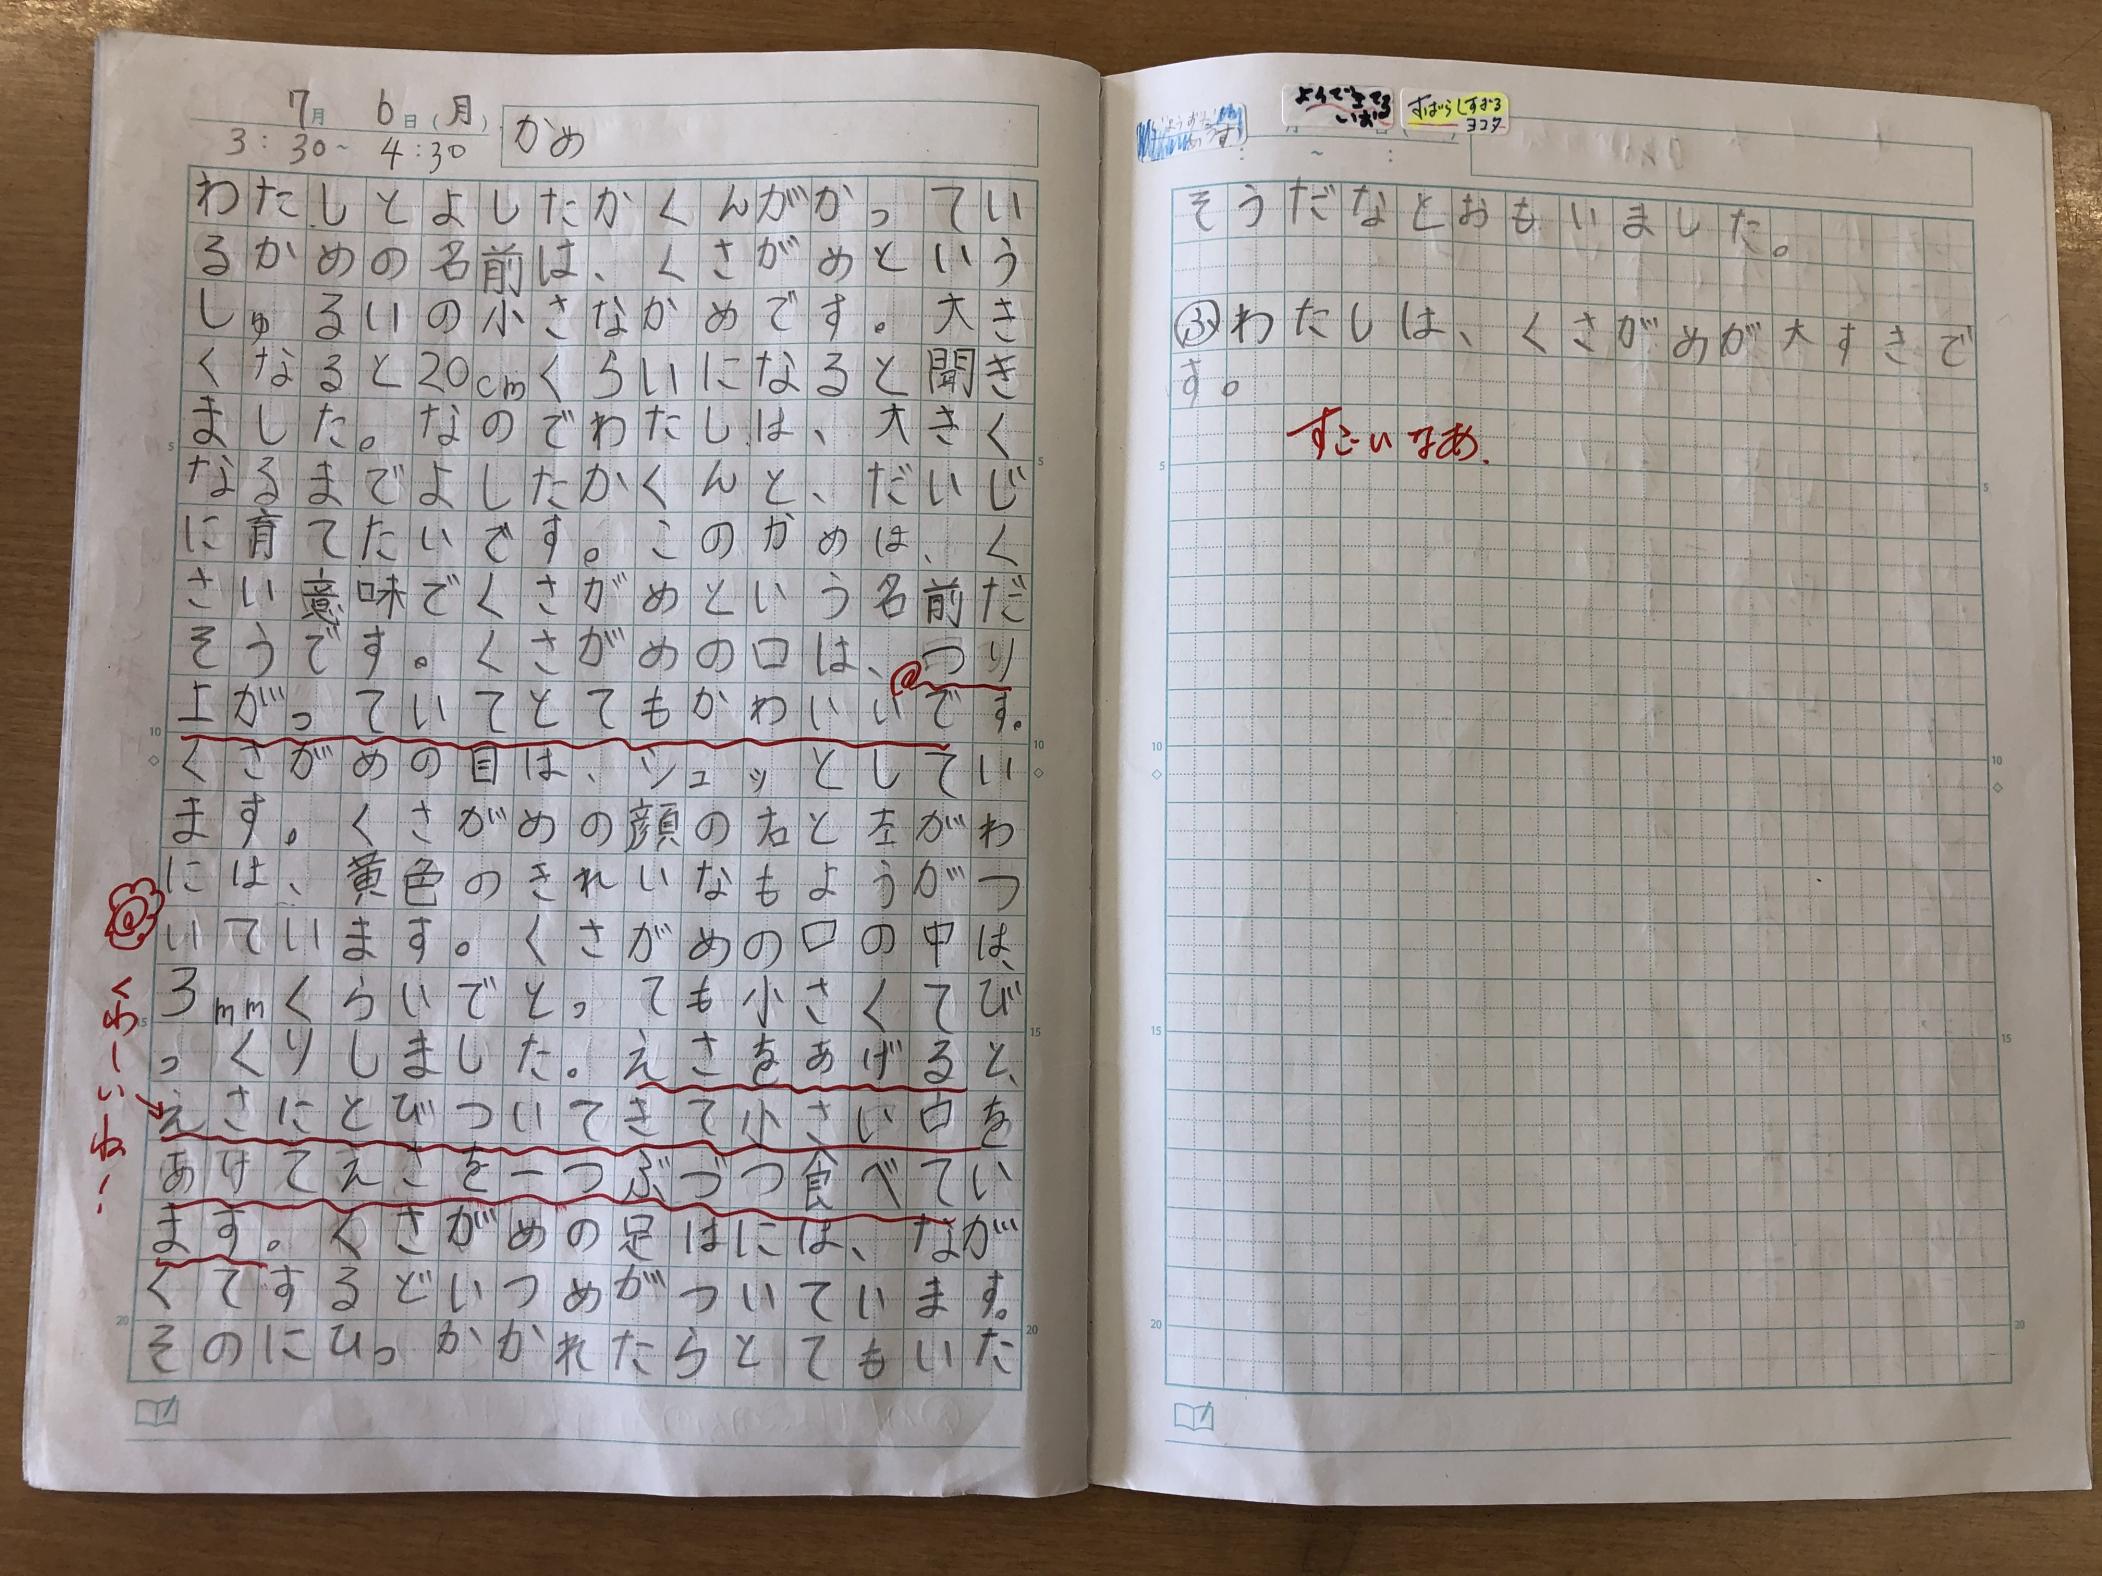 7月 6日(月)
3:30~4:30
かめ
わたしとよしたかくんがかってい
るかめの名前は、くさがめという
しゅるいの小さなかめです。大き
くなると20cmくらいになると聞き
ました。なのでわたしは、大きく
なるまでよしたかくんと、だいじ
に育てたいです。このかめは、く
さい意味でくさがめという名前だ
そうです。くさがめの口は、つり
上がっていてとてもかわいいです。
くさがめの目は、シュッとしてい
ます。くさがめの顔の右と左がわ
には、黄色のきれいなもようがつ
いています。くさがめの口の中は、
3mmくらいでとっても小さくてび
っくりしました。えさをあげると、
えさにとびついてきて小さい口を
あけてえさを一つぶづつ食べてい
ます。くさがめの足はには、なが
くてするどいつめがついています。
そのにひっかかれたらとてもいた
くわーしいね!
すばらしすぎる
ヨコタ
そうだなとおもいました。
ふわたしは、くさがめが大すきで
す。
すごいなあ.
5
10
15
20
5
10
15
20
5
10
15
20
5
10
15
20